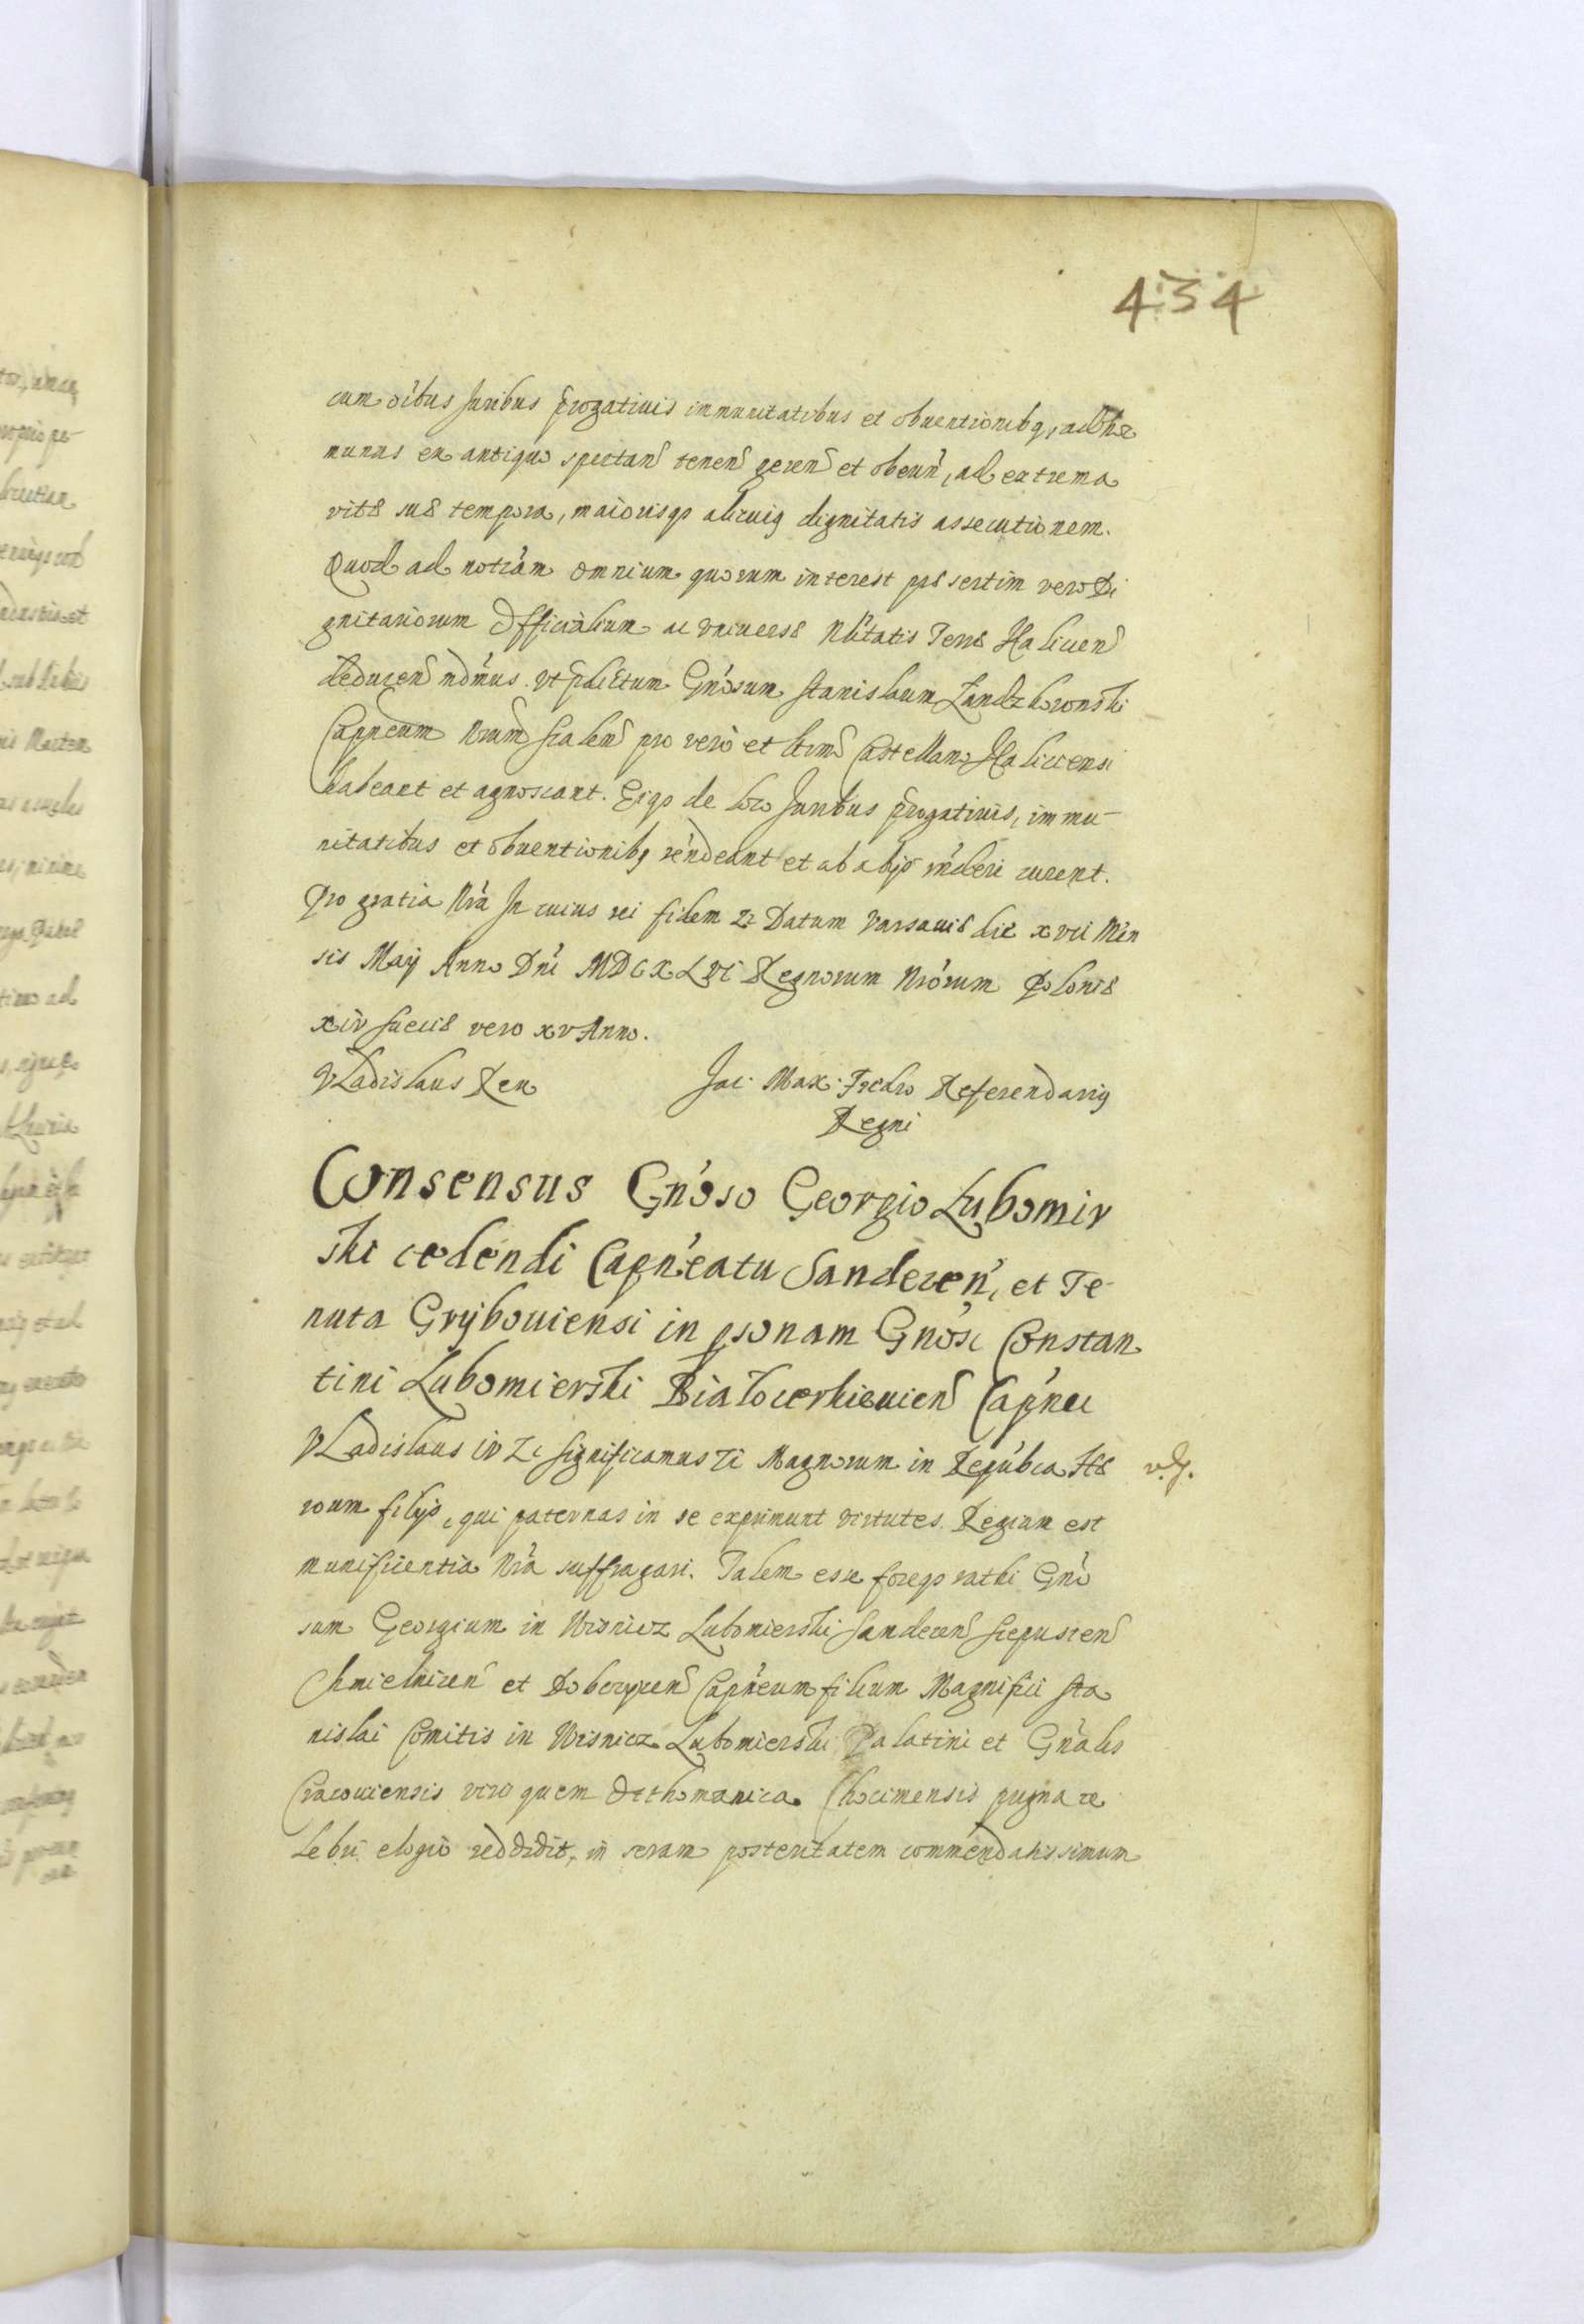 434
cum oîbus Juribus p̃rogatiuis immunitatibus et obuentionibq, ad hoc
munus ex antiquo spectañ teneñ gereñ et obeuñ, ad extrema
vitæ suæ tempora, maiorisqȝ alicuiq dignitatis assecutionem.
Quod ad notiãm omnium quorum interest præsertim vero Di
gnitariorum Officialium ac vniuersæ Nbĩtatis Terræ Haliceñ
deduceñ ndm̃us. vt p̃dictum Gnõsum Stanislaum Landzkoronski
Capneum Nrum Skaleñ pro vero et ltimõ Castellano Haliciensi
habeant et agnoscant. Eiqȝ de loco Juribus p̃rogatiuis, immu-
nitatibus et obuentionibq rñdeant et ab alijs rñderi curent.
Pro gratia Nrã In cuius rei fidem zc Datum Varsauiæ die xvii Men
sis Maij Anno Dnĩ MDCXLVI Regnorum Nrõrum Poloniæ
xiv Sueciæ vero xv Anno.
Vladislaus Rex Jac: Max: Fredro Referendariq
Regni
Consensus Gnõso Georgio Lubomir
ski cedendi Capñeatu Sandeceñ, et Te-
nuta Grybouiensi in psonam Gnõsi Constan
tini Lubomierski Białocerkieuieñ Capñei
Vladislaus iv Zc Significamus Zc Magnorum in Repũbca He v. g.
roum filijs, qui paternas in se exprimunt virtutes. Regium est
munificentia Nrã suffragari. Talem esse foreqȝ rati Gnõ
sum Georgium in Wisnicz Lubomierski Sandeceñ Scepusieñ
Chmielniceñ et Dobczyceñ Capñeum filium Magnifici Sta
nislai Comitis in Wisnicz Lubomierski Palatini et Gnãlis
Cracouiensis viro quem Otthomanica Chocimensis pugna ce
lebri elogio reddidit, in seram posteritatem commendatissimum